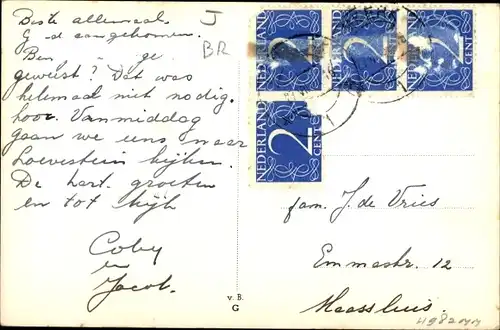 Beste allemaal.
G d aangekomen.
Ben ge
geweest? Dat was
helemaal niet nodig.
hoor. Vanmiddag
gaan we eens naar
Loevestein kijken.
De hart. groeten
en tot kijk
Coby
en
Jacob.
J
BR
NEDERLAND 2 CENT
NEDERLAND 2 CENT
NEDERLAND 2 CENT
NEDERLAND 2 CENT
fam. J. de Vries
Emmastr. 12
Maassluis.
v. B.
G